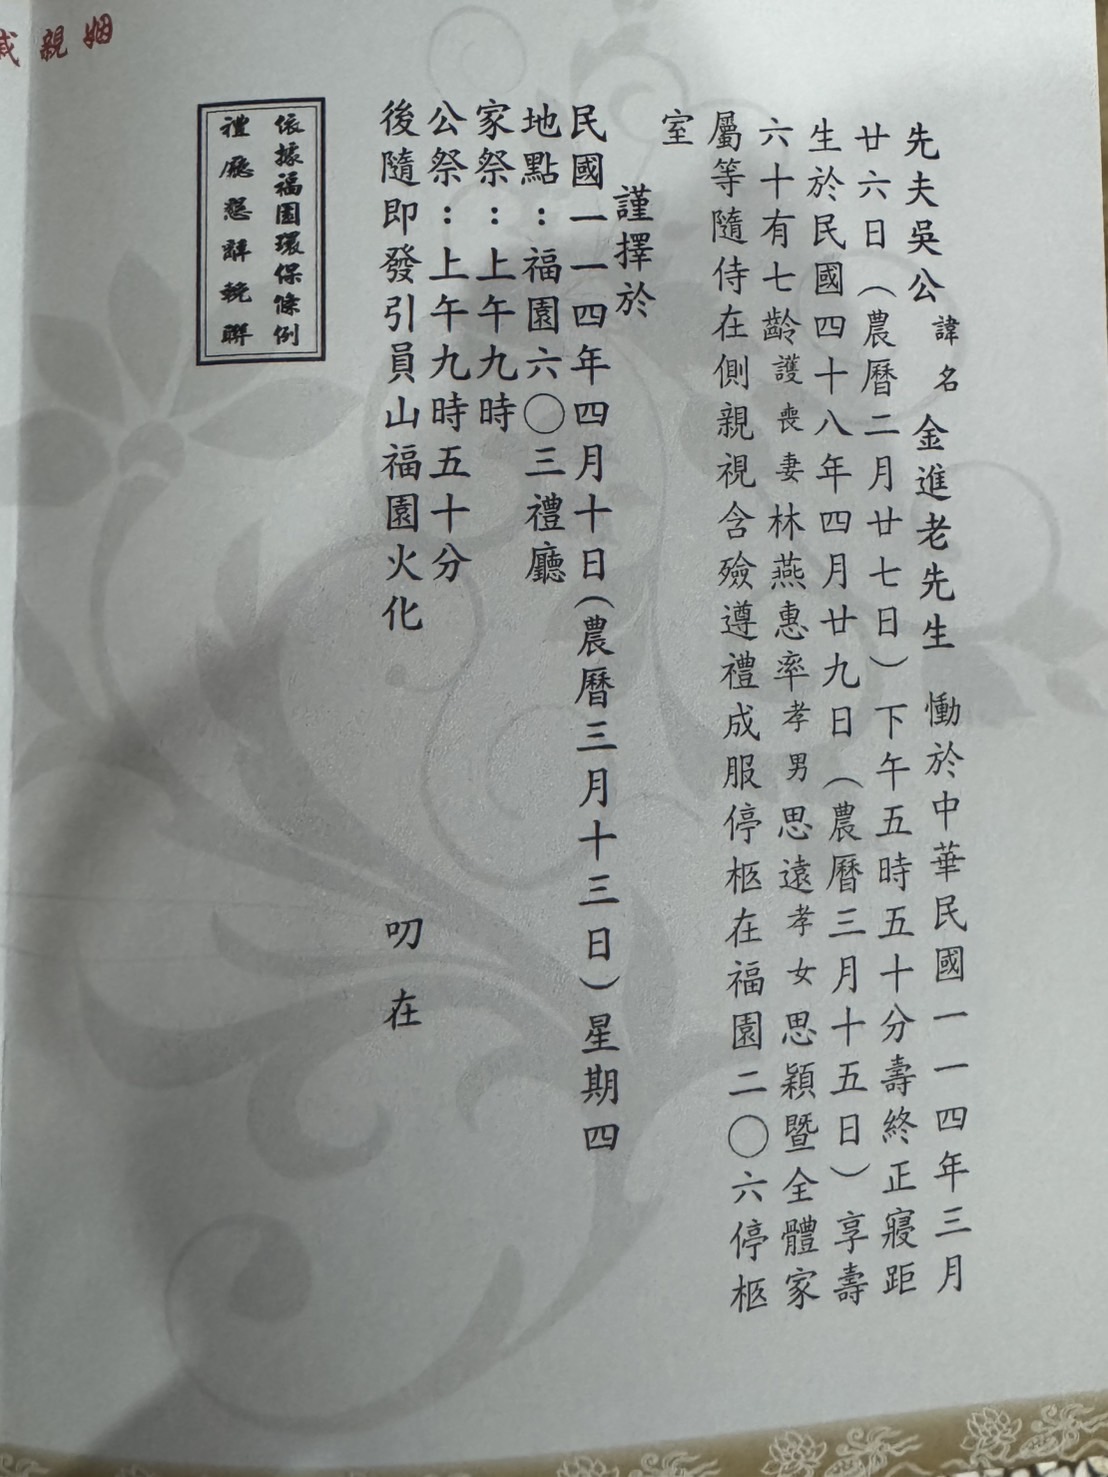 先夫吳公諱名金進老先生　慟於中華民國一一四年三月
廿六日（農曆二月廿七日）下午五時五十分壽終正寢距
生於民國四十八年四月廿九日（農曆三月十五日）享壽
六十有七齡護喪妻林燕惠率孝男思遠孝女思穎暨全體家
屬等隨侍在側親視含殮遵禮成服停柩在福園二〇六停柩
室
謹擇於
民國一一四年四月十日（農曆三月十三日）星期四
地點：福園六〇三禮廳
家祭：上午九時
公祭：上午九時五十分
後隨即發引員山福園火化　叨在
依據福園環保條例
禮廳懇辭輓聯
姻親戚